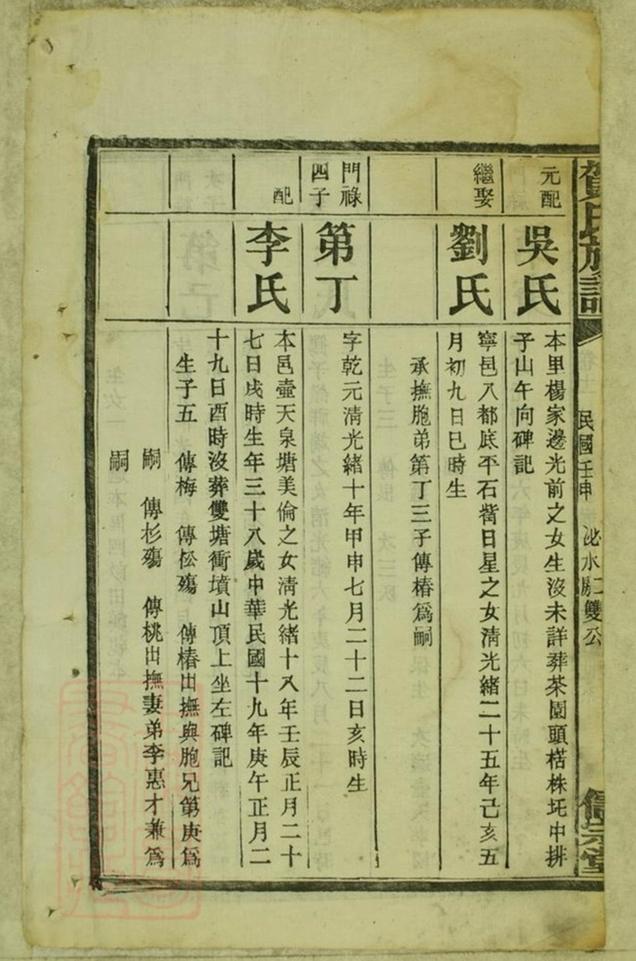 賀氏族譜
民國壬申
泌水郡二雙公
儁宗堂
元配
吳氏
本里楊家邊光前之女生沒未詳葬茶園頭楛株圫中排
子山午向碑記
繼娶
劉氏
寧邑八都底平石觜日星之女清光緒二十五年己亥五
月初九日巳時生
承撫胞弟第丁三子傳椿爲嗣
門祿
四子
第丁
字乾元清光緒十年甲申七月二十二日亥時生
配
李氏
本邑壺天泉塘美倫之女清光緒十八年壬辰正月二十
七日戌時生年三十八歲中華民國十九年庚午正月二
十九日酉時沒葬雙塘衝墳山頂上坐左碑記
生子五 傳梅 傳松殤 傳椿出撫與胞兄第庚爲
嗣 傳杉殤 傳桃出撫妻弟李惠才兼爲
嗣